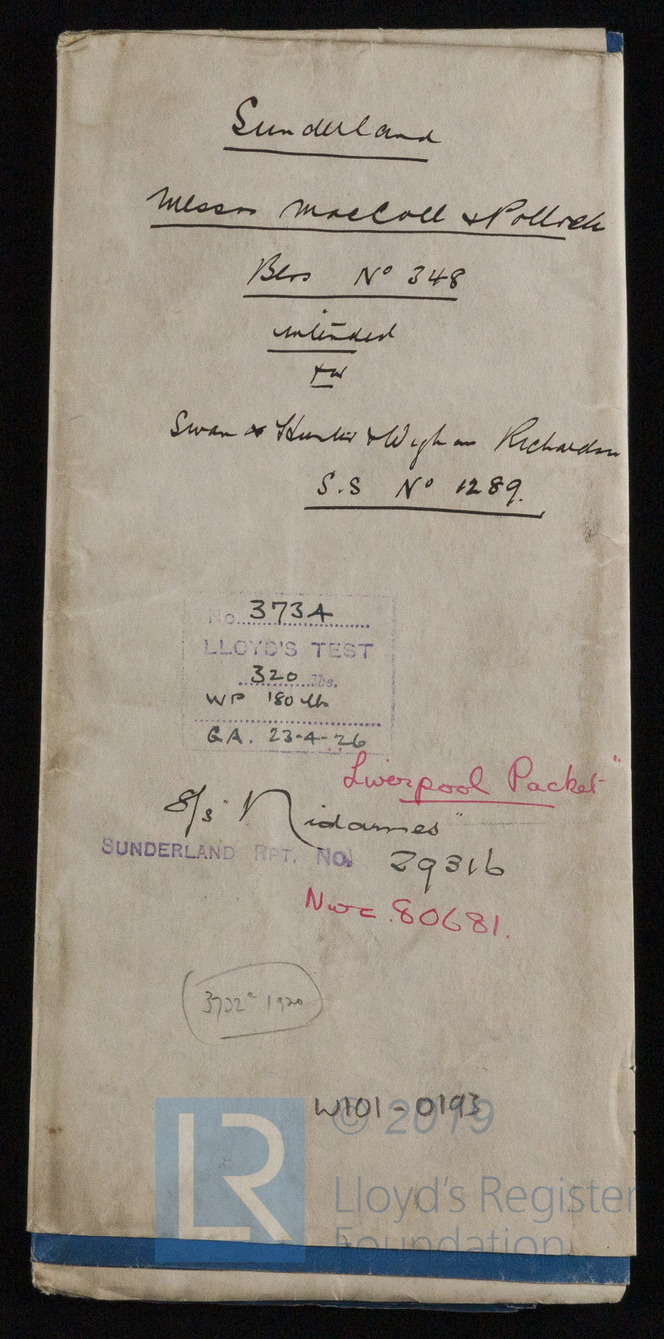 Sunderland
Messrs MacColl & Pollock
Blrs No 348
intended
for
Swan & Hunter & Wigham Richardson
S.S No 1289.
No. 3734
LLOYD'S TEST
320 lbs.
WP 180 lb
G.A. 23-4-26
Liverpool Packet"
S/s "Nidarnes"
SUNDERLAND RPT. No. 29316
Nwc 80681.
W101-0193
© 2019
LR
Lloyd's Register
Foundation